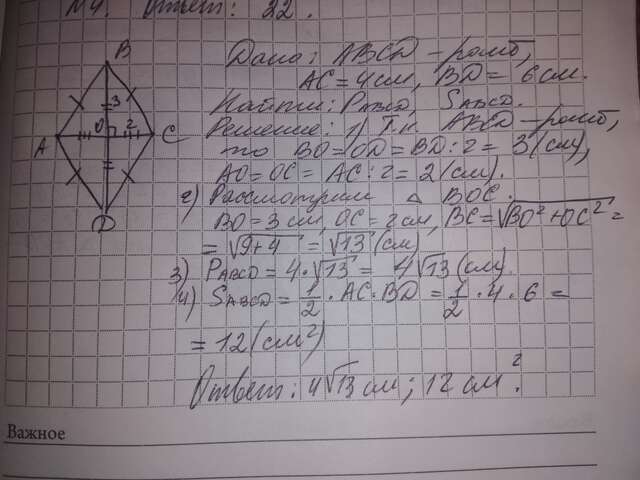 №4. Ответ: 22.
B
3
O
2
A
C
D
Дано: ABCD - ромб,
AC = 4 см, BD = 6 см.
Найти: PABCD, SABCD.
Решение: 1) Т.к. ABCD - ромб,
то BO = OD = BD : 2 = 3 (см),
AO = OC = AC : 2 = 2 (см).
2) Рассмотрим △ BOC.
BO = 3 см, OC = 2 см, BC = √BO² + OC² =
= √9+4 = √13 (см)
3) PABCD = 4 · √13 = 4√13 (см).
4) SABCD = 1/2 · AC · BD = 1/2 · 4 · 6 =
= 12 (см²)
Ответ: 4√13 см; 12 см².
Важное